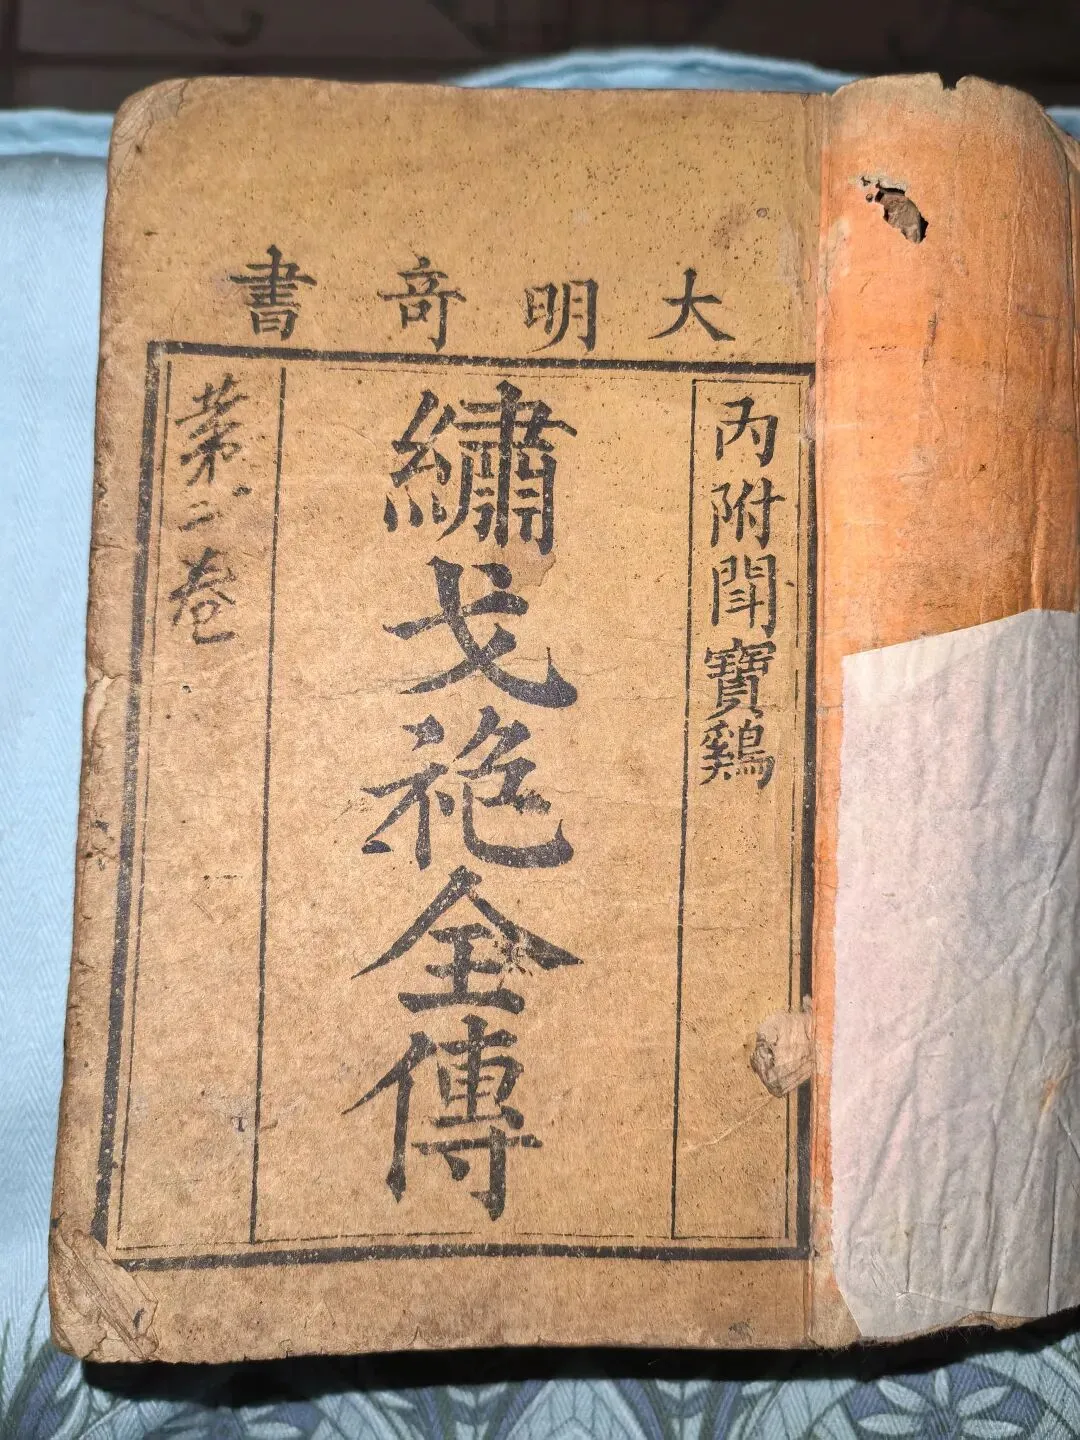 大明竒書
內附閗寶鷄
繡戈袍全傳
第二卷